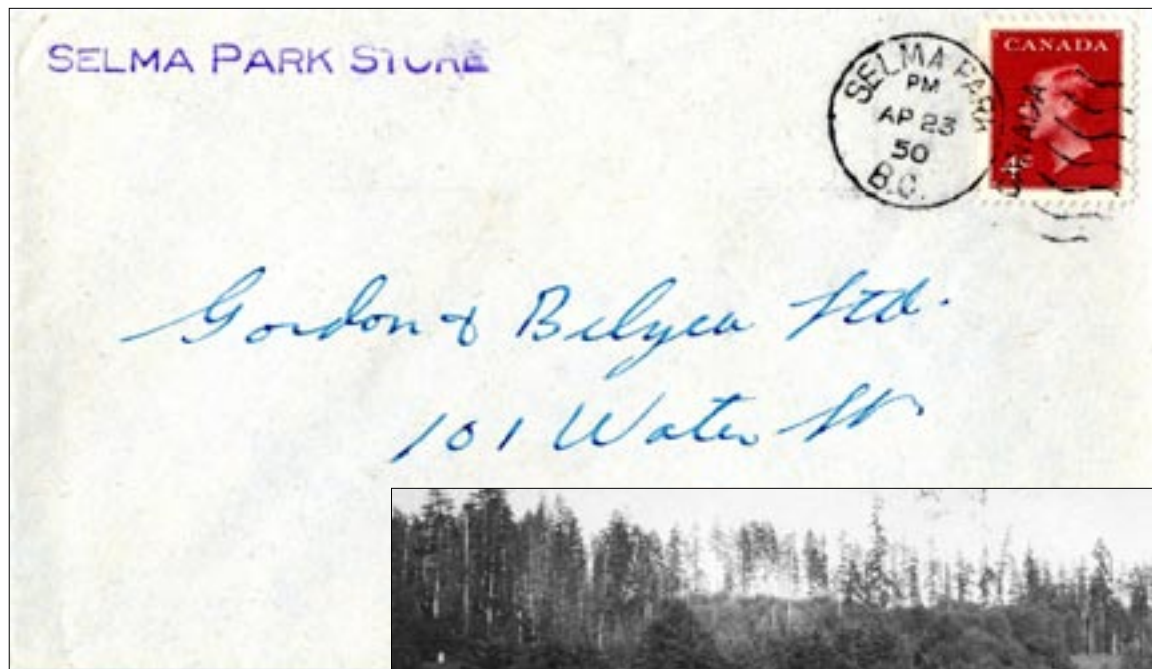 SELMA PARK STORE
SELMA PARK
PM
AP 23
50
B.C.
CANADA
4
CANADA
Gordon & Belyea Ltd.
101 Water St